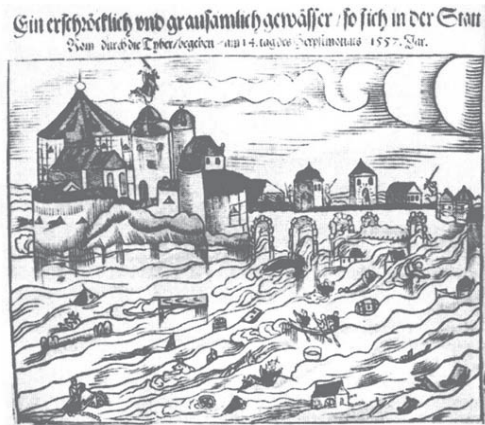 Ein erschröcklich vnd grausamlich gewässer / so sich in der Statt
Rom durch die Tyber / begeben / am 14. tag des Herpstmonats 1557. Jar.